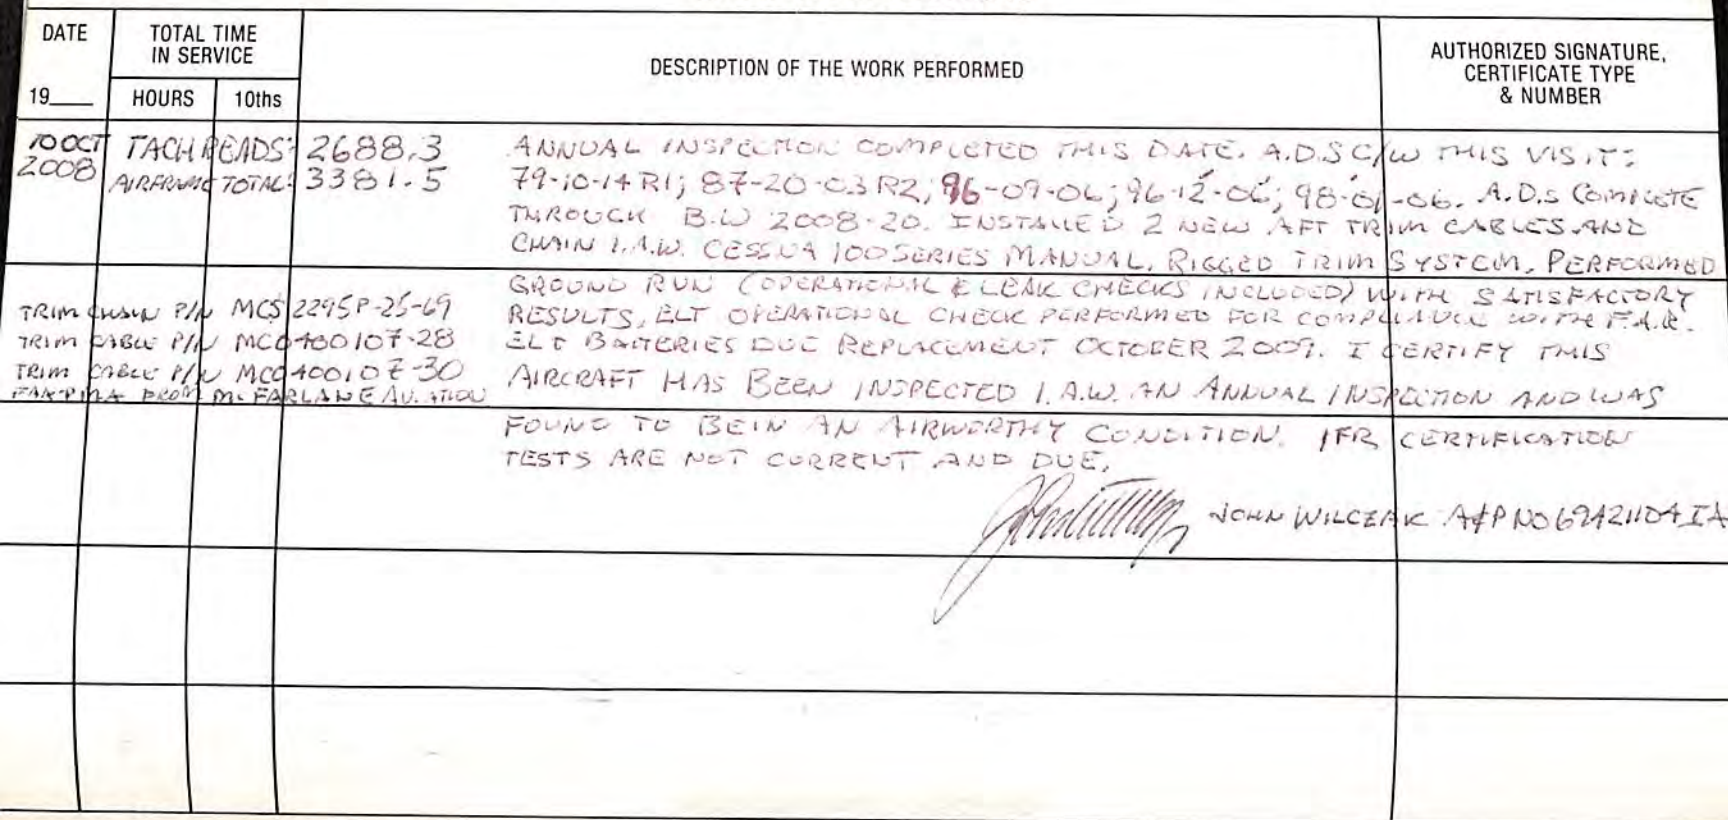 DATE
TOTAL TIME
IN SERVICE
DESCRIPTION OF THE WORK PERFORMED
AUTHORIZED SIGNATURE,
CERTIFICATE TYPE
& NUMBER
19
HOURS
10ths
10 OCT
2008
TACH READS: 2688.3
AIRFRAME TOTAL: 3381.5
ANNUAL INSPECTION COMPLETED THIS DATE. A.D.S C/W THIS VISIT:
79-10-14 R1; 87-20-03 R2; 96-09-06; 96-12-06; 98-01-06. A.D.s COMPLETE
THROUGH B.W 2008-20. INSTALLED 2 NEW AFT TRIM CABLES AND
CHAIN I.A.W. CESSNA 100 SERIES MANUAL. RIGGED TRIM SYSTEM. PERFORMED
GROUND RUN (OPERATIONAL & LEAK CHECKS INCLUDED) WITH SATISFACTORY
RESULTS, ELT OPERATIONAL CHECK PERFORMED FOR COMPLIANCE WITH F.A.R.
ELT BATTERIES DUE REPLACEMENT OCTOBER 2009. I CERTIFY THIS
AIRCRAFT HAS BEEN INSPECTED I.A.W. AN ANNUAL INSPECTION AND WAS
FOUND TO BE IN AN AIRWORTHY CONDITION. IFR CERTIFICATION
TESTS ARE NOT CURRENT AND DUE.
TRIM CHAIN P/N MCS 2295P-25-69
TRIM CABLE P/N MC0400107-28
TRIM CABLE P/N MC0400107-30
FAA-PMA FROM McFARLANE AVIATION
JOHN WILCZAK A&P NO 69421104 IA